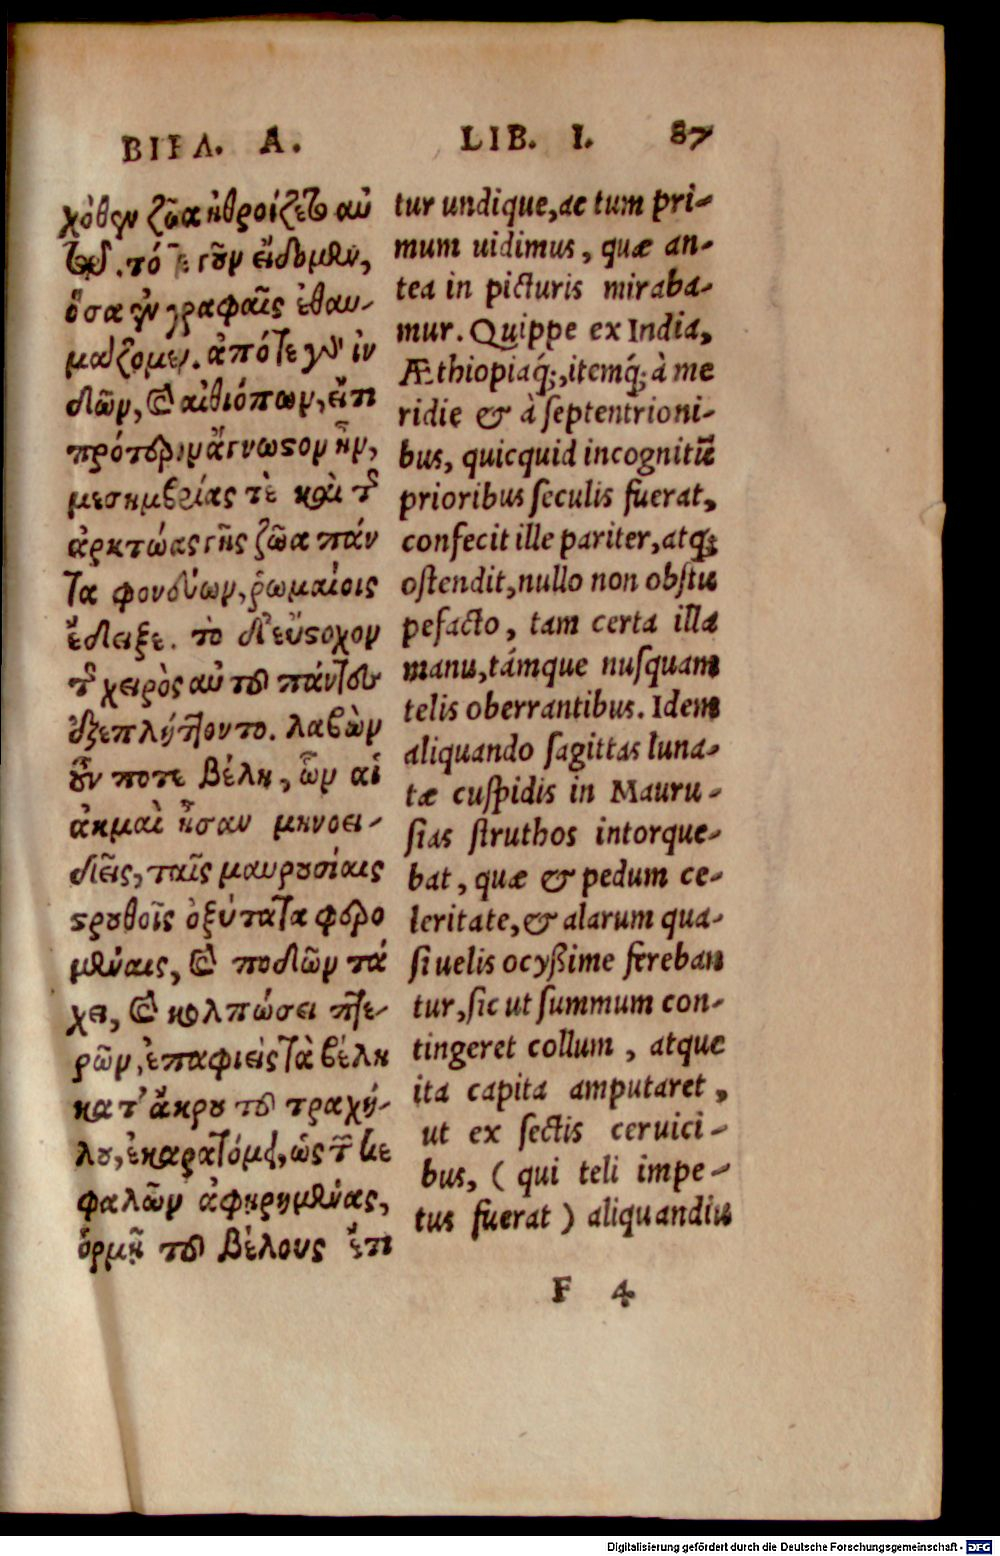 ΒΙΒΛ. Α.
χόθεν ζῶα ἠθροίζετο αὐ
τῷ. τότε γοῦν εἴδομεν,
ὅσα ἐν γραφαῖς ἐθαυ-
μάζομεν. ἀπό τε γὰρ ἰν
δῶν, καὶ αἰθιόπων, εἴτι
πρότερον ἄγνωστον ἦν,
μεσημβρίας τὲ καὶ τῆς
ἀρκτώας γῆς ζῶα πάν
τα φονεύων, ῥωμαίοις
ἔδειξε. τὸ δ' εὔστοχον
τῆς χειρὸς αὐτοῦ πάντες
ἐξεπλήττοντο. λαβὼν
οὖν ποτε βέλη, ὧν αἱ
ἀκμαὶ ἦσαν μηνοει-
δεῖς, ταῖς μαυρουσίαις
στρουθοῖς ὀξύτατα φερο
μέναις, καὶ ποδῶν τά
χει, καὶ κολπώσει πτε-
ρῶν, ἐπαφιεὶς τὰ βέλη
κατ' ἄκρου τοῦ τραχή-
λου, ἐκαρατόμει, ὡς τῶν κε
φαλῶν ἀφῃρημένας,
ὁρμῇ τοῦ βέλους ἔτι
LIB. I. 87
tur undique, ac tum pri-
mum uidimus, quæ an-
tea in picturis miraba-
mur. Quippe ex India,
Æthiopiaq́;, itemq́; à me
ridie & à ſeptentrioni-
bus, quicquid incognitũ
prioribus ſeculis fuerat,
confecit ille pariter, atq;
oſtendit, nullo non obſtu
pefacto, tam certa illa
manu, támque nuſquam
telis oberrantibus. Idem
aliquando ſagittas luna-
tæ cuſpidis in Mauru-
ſias ſtruthos intorque-
bat, quæ & pedum ce-
leritate, & alarum qua-
ſi uelis ocyßime fereban
tur, ſic ut ſummum con-
tingeret collum, atque
ita capita amputaret,
ut ex ſectis ceruici-
bus, ( qui teli impe-
tus fuerat ) aliquandiu
F 4
Digitalisierung gefördert durch die Deutsche Forschungsgemeinschaft - DFG